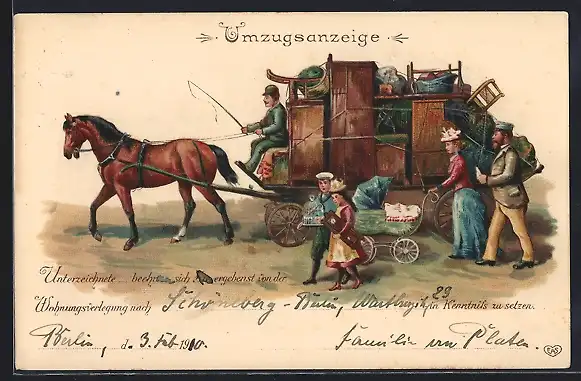 Umzugsanzeige
Unterzeichnete ... beehren sich ergebenst von der
Wohnungsverlegung nach Schöneberg - Berlin, 29 in Kenntnifs zu setzen.
Berlin, d. 3. Feb 1910. Familie von Platen.
EAS